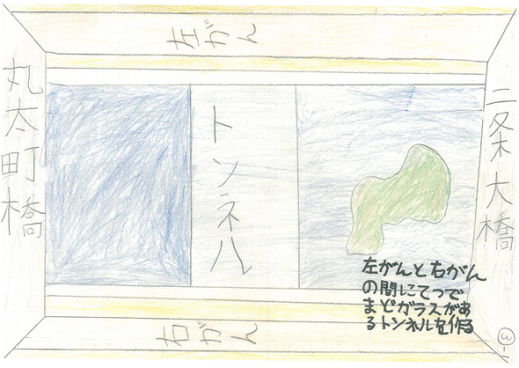 左がん
丸太町橋
トンネル
二条大橋
左がんと右がん
の間にてつで
まどガラスがあ
るトンネルを作る
右がん